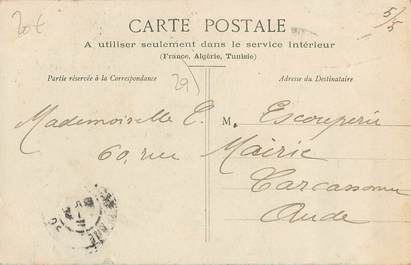 20t
5/5
CARTE POSTALE
A utiliser seulement dans le service intérieur
(France, Algérie, Tunisie)
Partie réservée à la Correspondance
Adresse du Destinataire
29)
Mademoiselle E. M. Escouperié
60, rue Mairie
Carcassonne
Aude